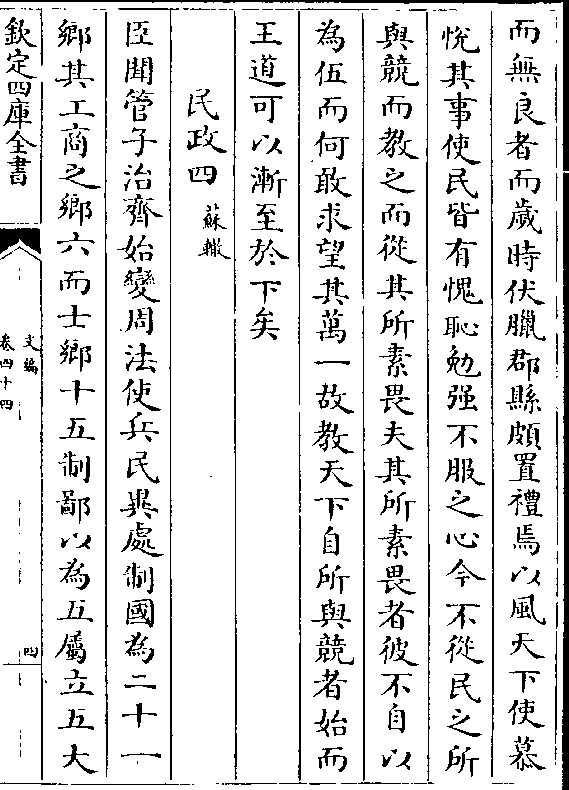 而無良者而歲時伏臘郡縣頗置禮焉以風天下使慕
悅其事使民皆有愧恥勉强不服之心今不從民之所
與競而教之而從其所素畏夫其所素畏者彼不自以
為伍而何敢求望其萬一故教天下自所與競者始而
王道可以漸至於下矣
民政四 蘇轍
臣聞管子治齊始變周法使兵民異處制國為二十一
鄉其工商之鄉六而士鄉十五制鄙以為五屬立五大
欽定四庫全書
文編
卷四十四
四